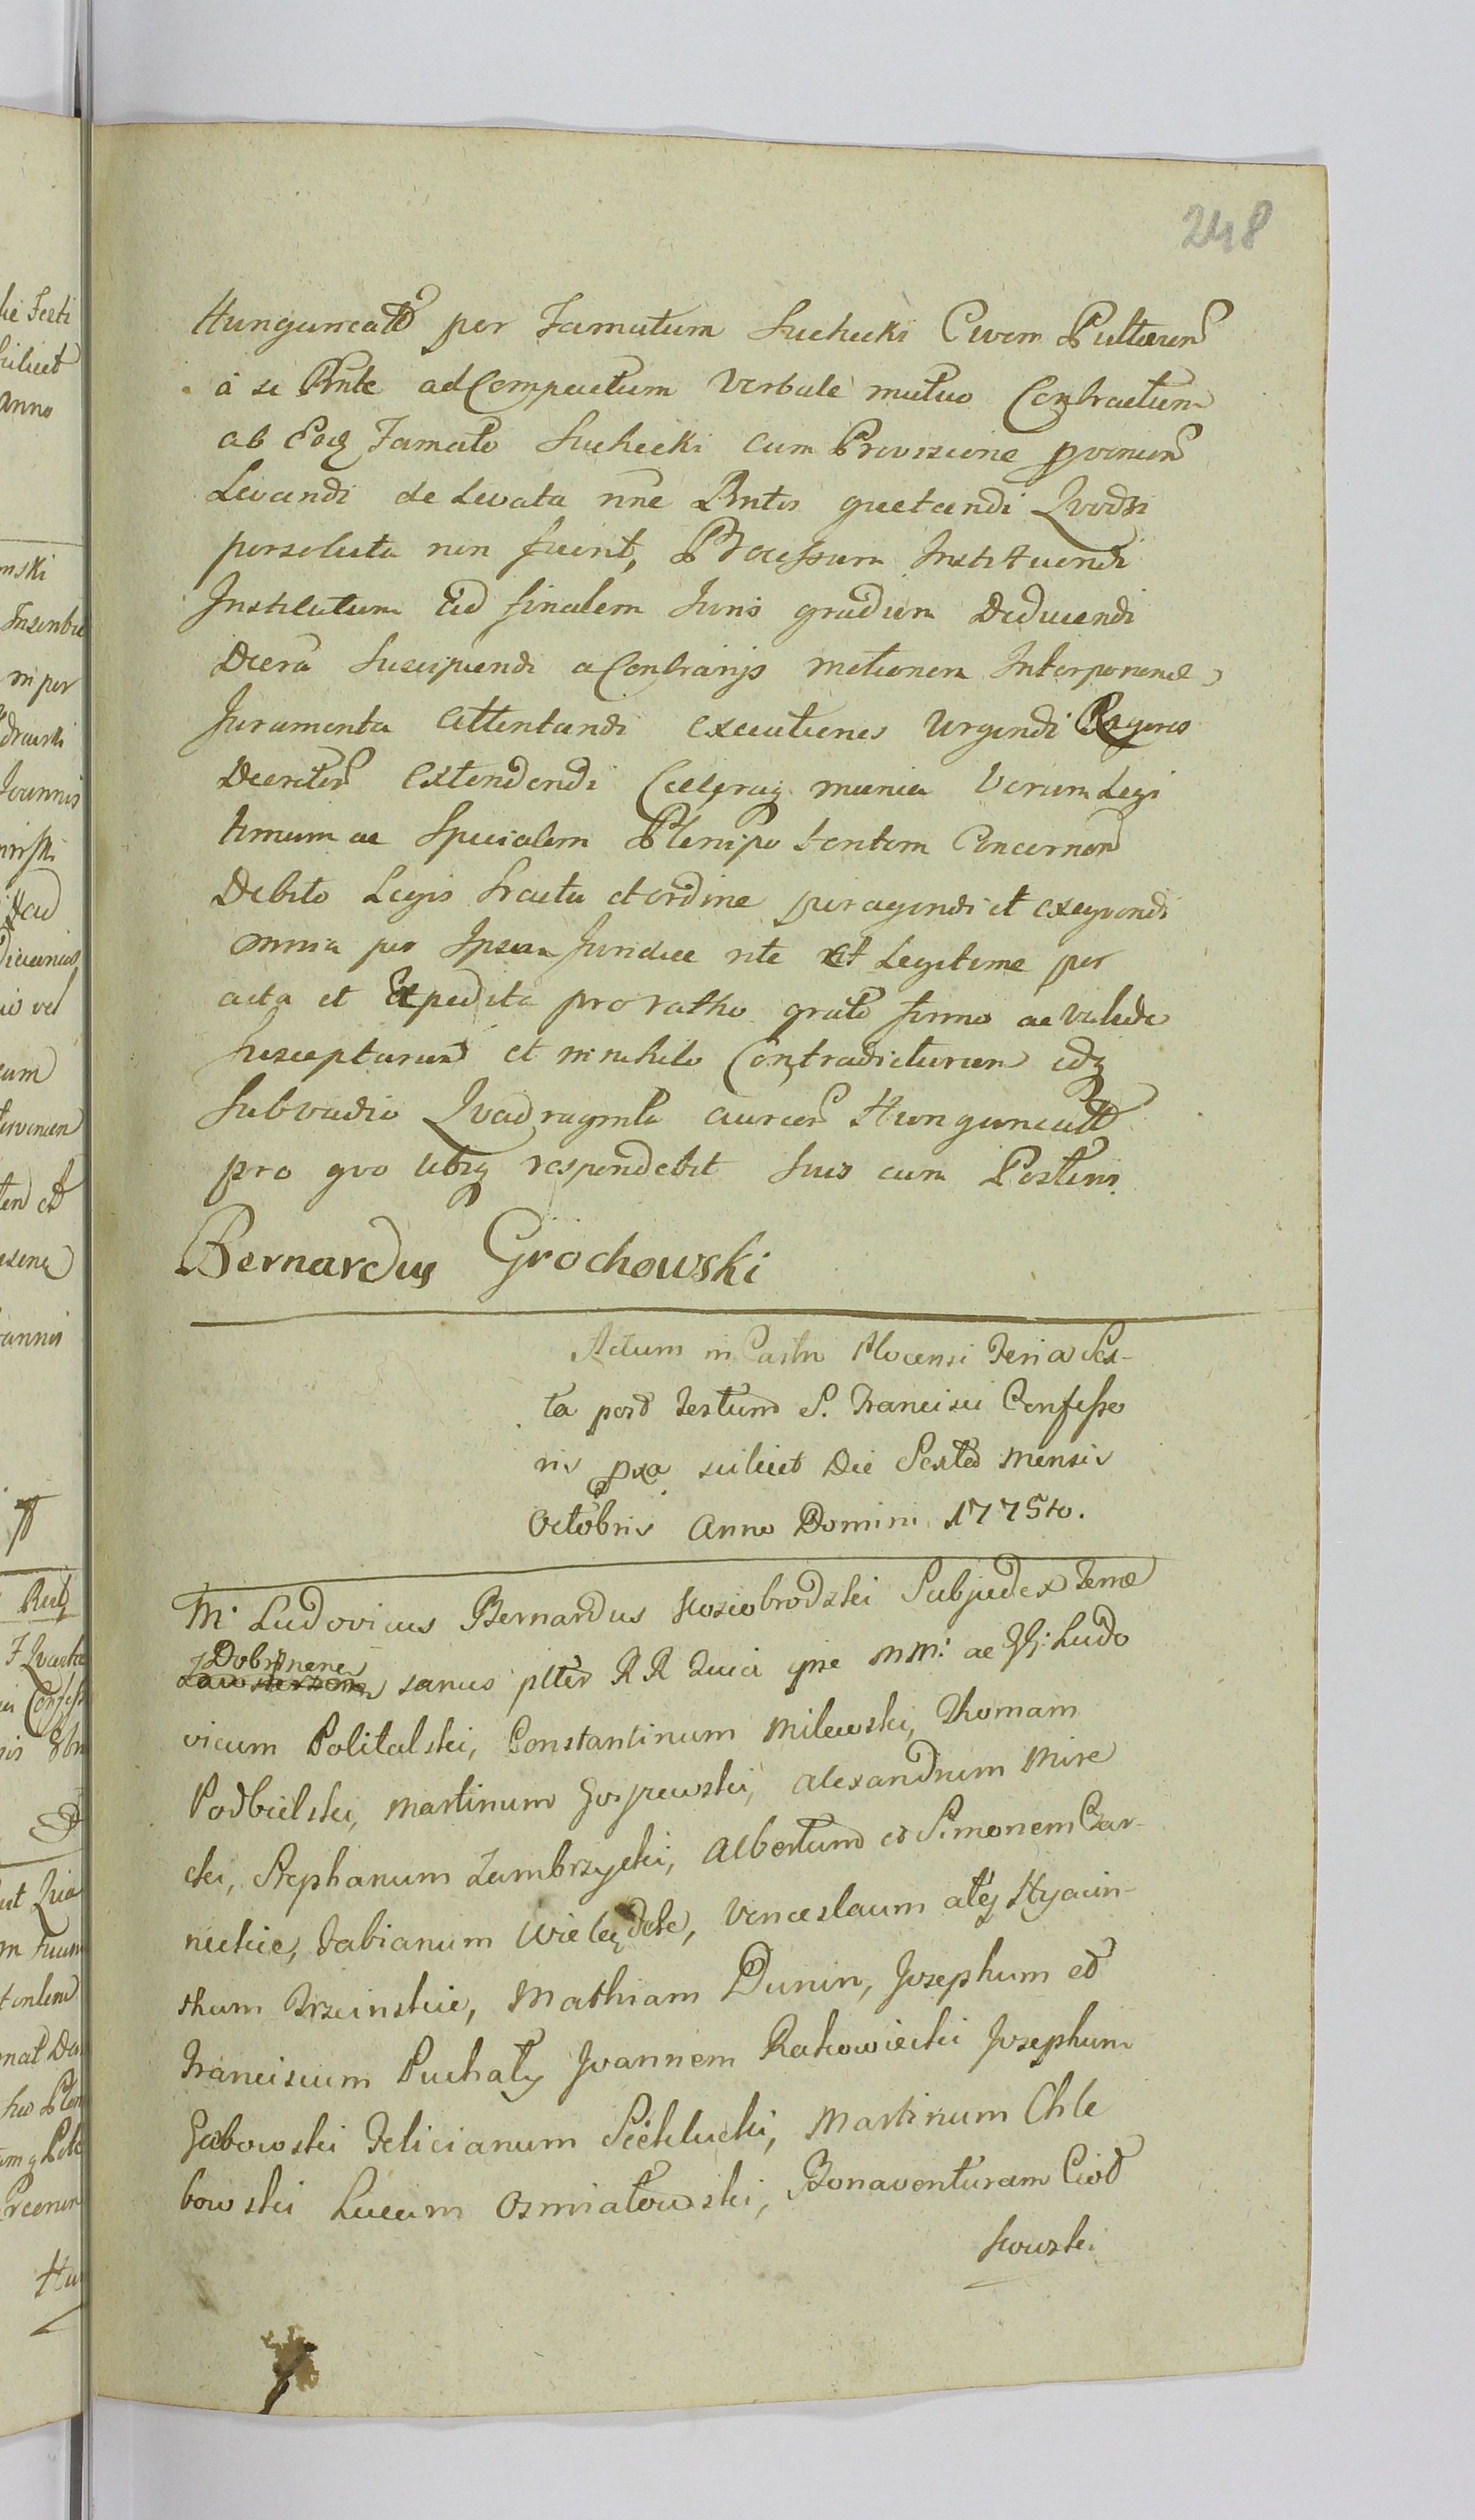 248
Hungaricales per Famatum Suchecki Civem Pultovien
à se Pnte ad Compactum Verbale mutuo Contractum
ab Eodq Famato Suchecki cum Provisione proven
Levandi de Levata nne Pntis quietandi Qvodsi
persoluta non fuerit, Processum Instituendi
Institutum ad finalem Juris gradum Deducendi
Decrā Suscipiendi a Contrarys motionem Interponend
Juramenta attentandi executiones Urgendi Rigores
Decrētor extendendi Cæterāq munia Verum Legi
timum ac Specialem Plenipotentem Concernen
Debito Legis tractu et ordine peragendi et exeqvendi
omnia per Ipsum Juridice rite et Legitime per
acta et Expedita pro ratho grato firmo ac valido
Suscepturum et in nihilo Contradicturum idq
Sub vadio Qvadraginta aureor Hungarical
pro qvo ubiq respondebit Suis cum Posteris
Bernardus Grochowski
Actum in Castro Plocensi Feria Sex-
ta post Festum S. Francisci Confesso
ris pxa scilicet Die Sexta Mensis
Octobris Anno Domini 1775to.
M. Ludovicus Bernardus Koziobrodzki Subjudex Terræ
Dobrinen
sanus ptter RR Quia ipse MM: ac GG: Ludo
vicum Politalski, Constantinum Milewski, Thomam
Podbielski, Martinum Gosiewski, Alexandrum Mire
cki, Stephanum Zambrzycki, Albertum et Simonem Czar-
neckie, Fabianum Wielądek, Venceslaum atq Hyacin-
thum Trzcinskie, Mathiam Dunin, Josephum et
Franciscum Puchały Joannem Rakowiecki Josephum
Gabowski Felicianum Siekłucki, Martinum Chle
bowski Lucam Osmiałowski, Bonaventuram Ciot
kowski